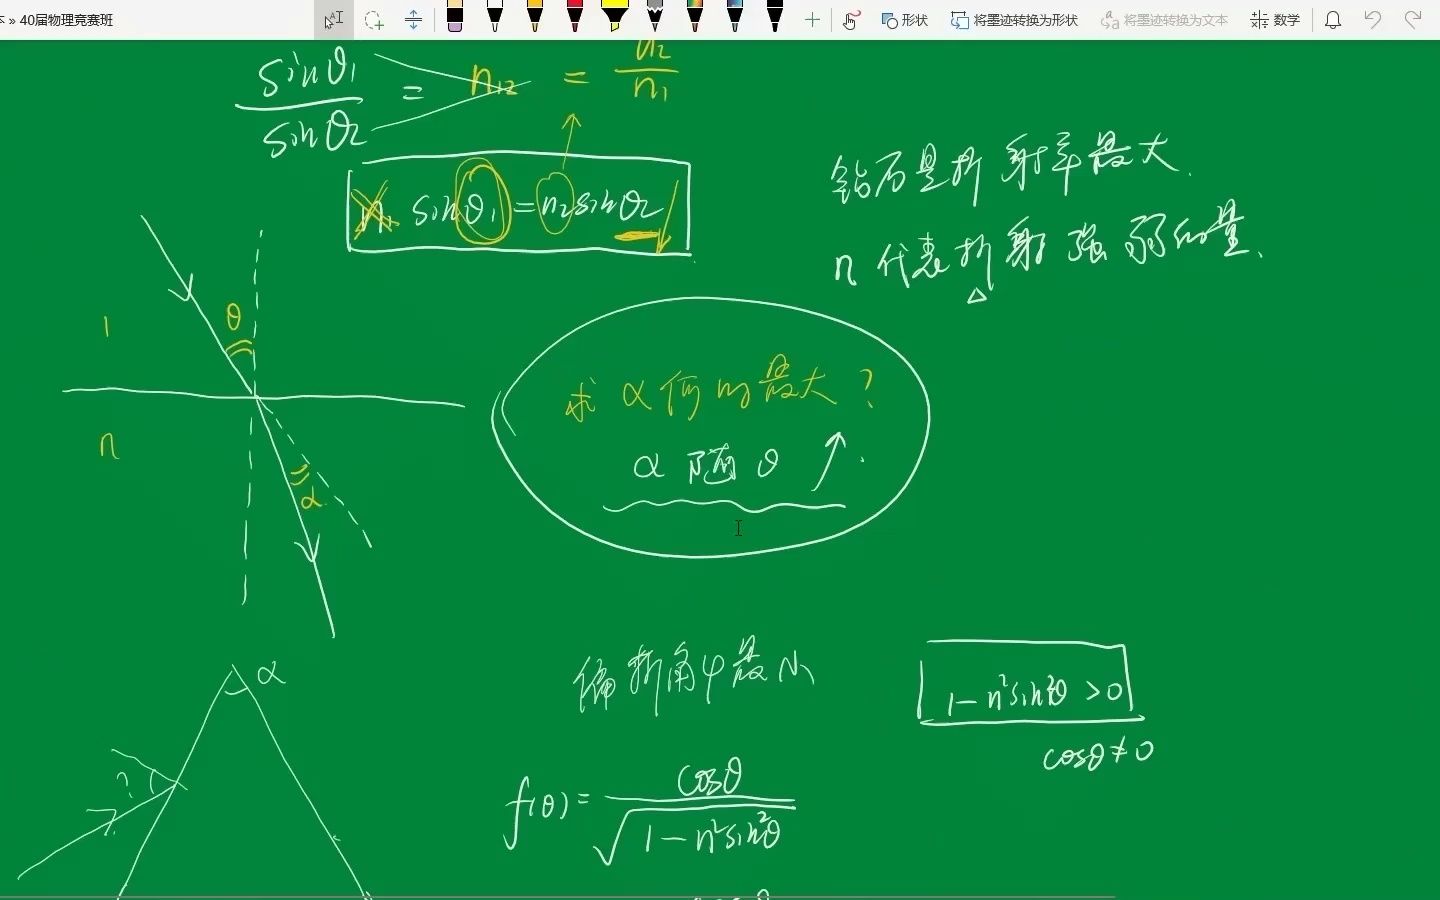 » 40届物理竞赛班
形状 将墨迹转换为形状 将墨迹转换为文本 数学
sinθ₁/sinθ₂ = n₁₂ = n₂/n₁
n₁ sinθ₁ = n₂ sinθ₂
钻石是折射率最大.
n 代表折射强弱的量.
θ
1
n
α
求 α 何时最大?
α 随 θ ↑.
偏折角φ最小
1-n²sin²θ >0
cosθ≠0
α
?
f(θ)= cosθ/√(1-n²sin²θ)